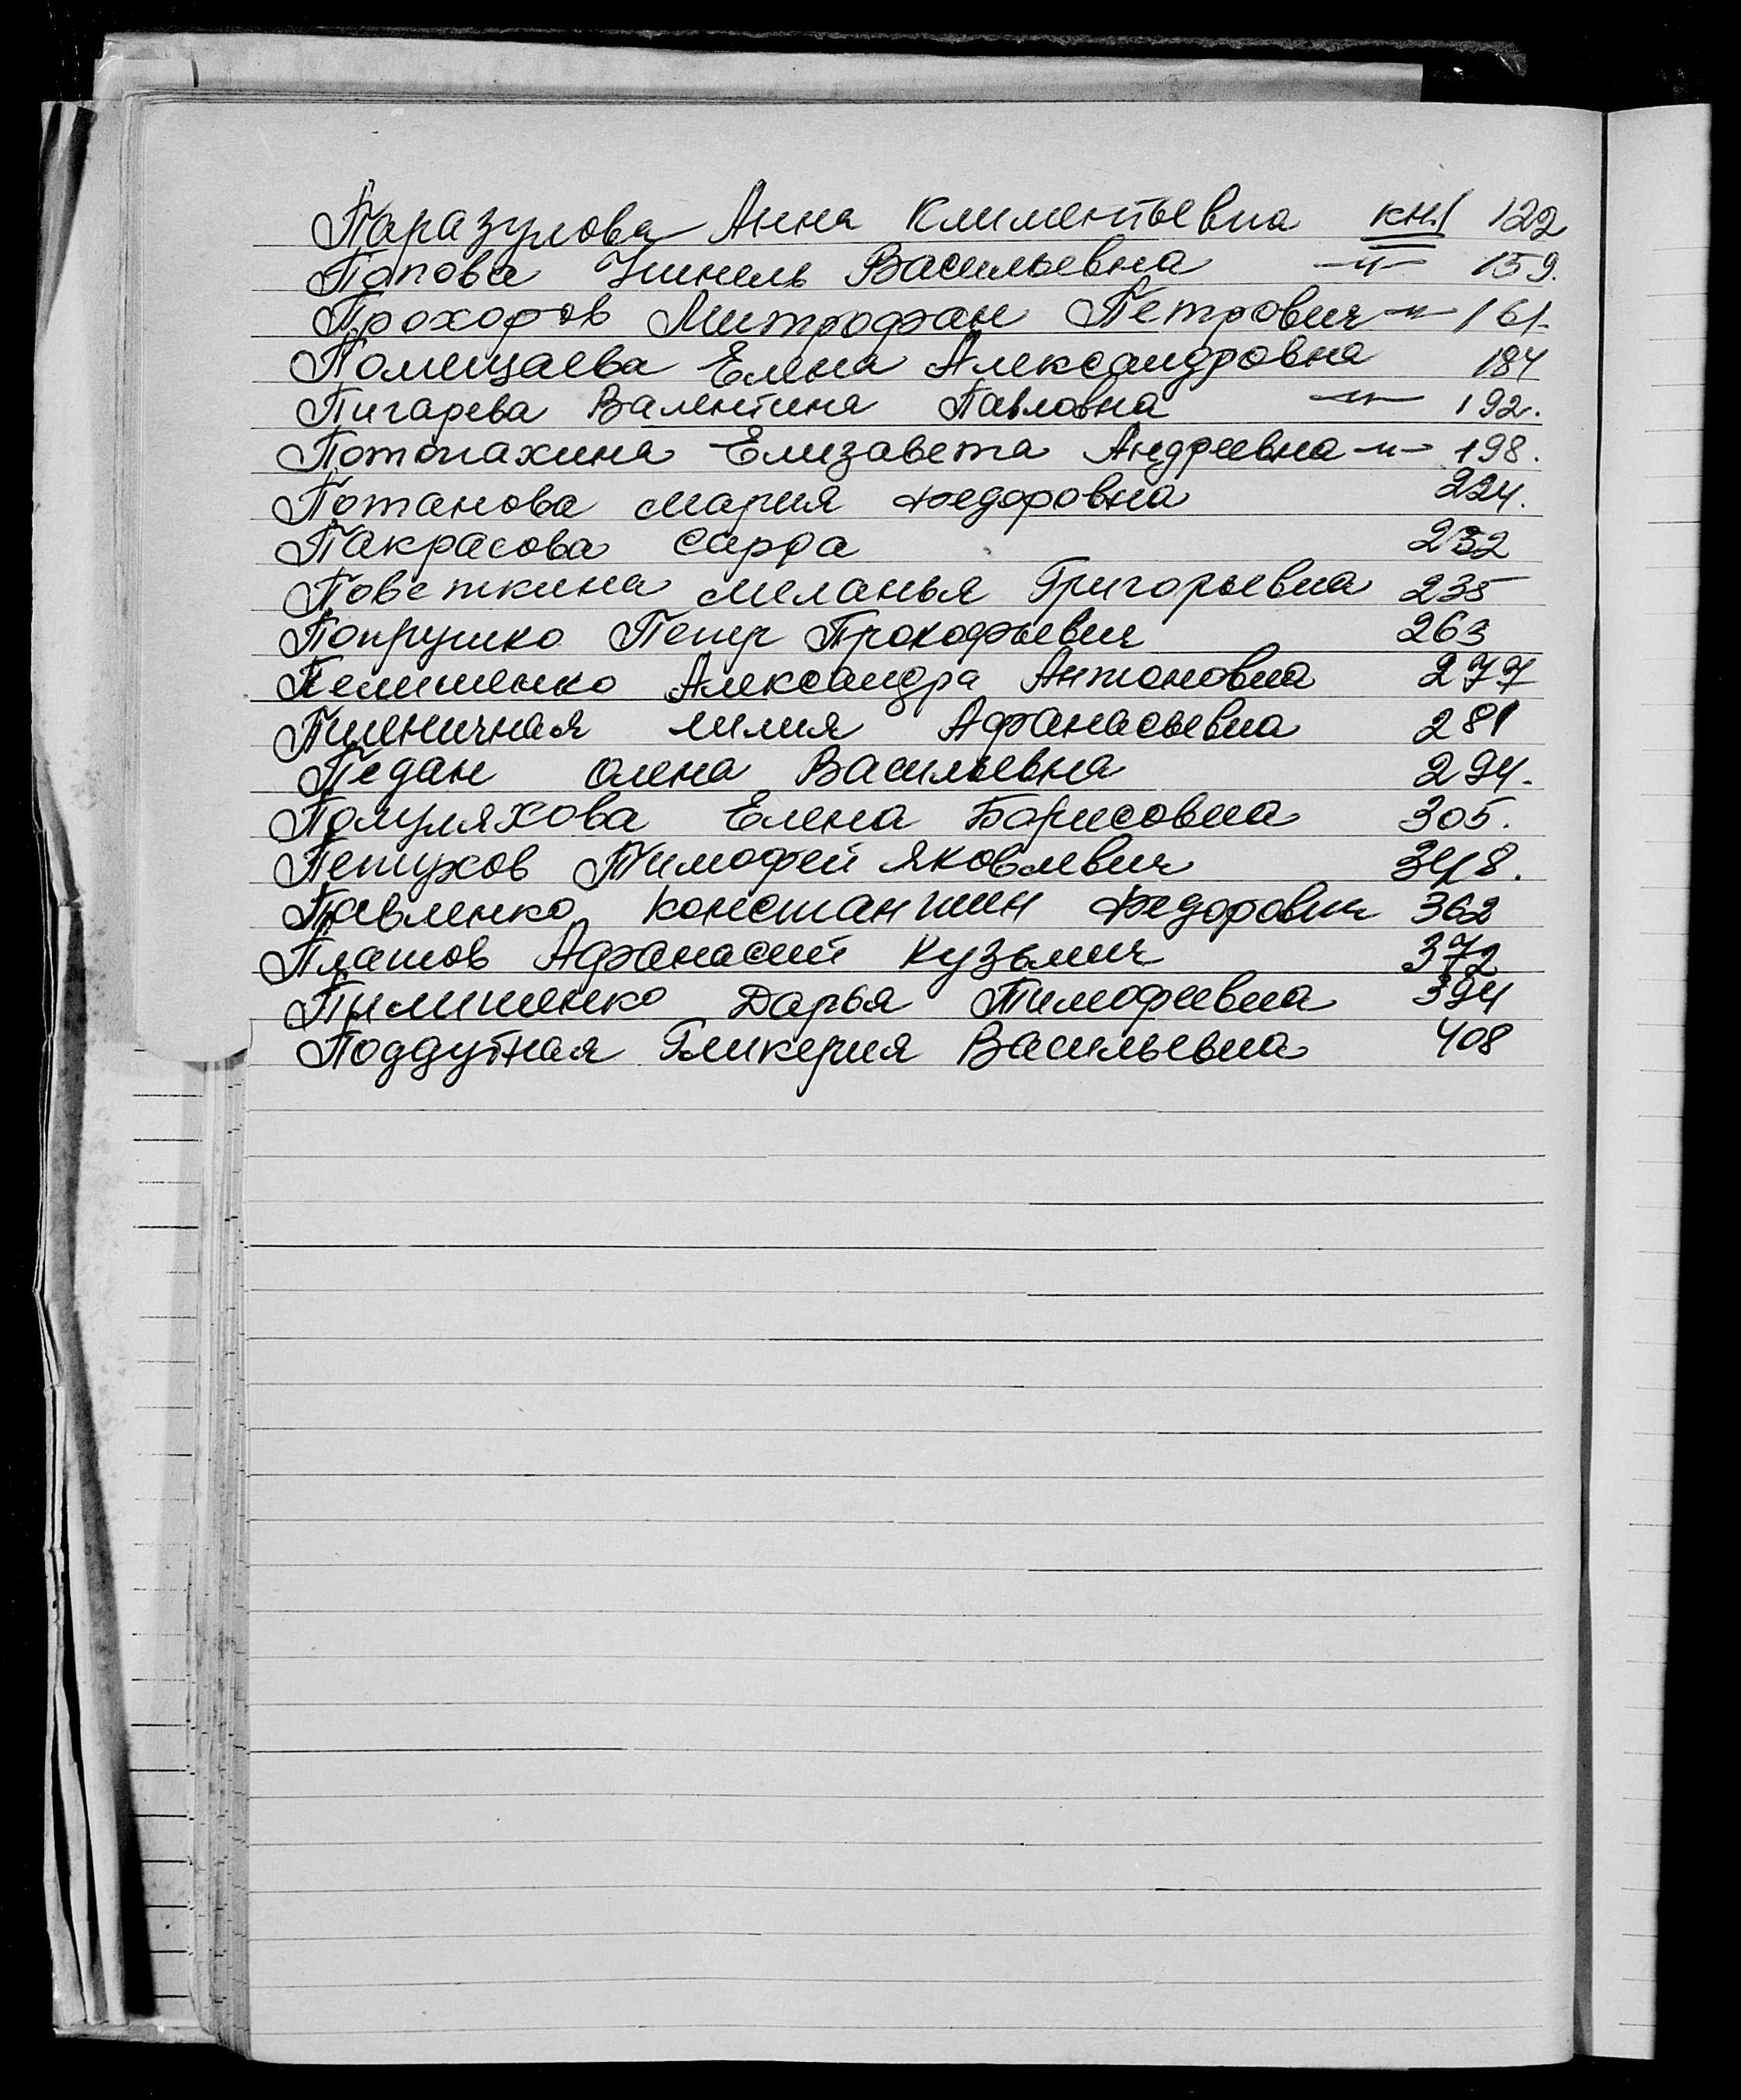 Паразулова Анна Климентьевна кн.1 122
Попова Нинель Васильевна -"- 159.
Прохоров Митрофан Петрович -"- 161.
Помещаева Елена Александровна 184
Пигарева Валентина Павловна -"- 192.
Потопахина Елизавета Андреевна -"- 198.
Потанова Мария Федоровна 224.
Пакрасова Сарра 232
Поветкина Меланья Григорьевна 235
Попрушко Петр Прокофьевич 263
Пелишенко Александра Антоновна 277
Пшеничная Лилия Афанасьевна 281
Педан Олена Васильевна 294.
Помуляхова Елена Борисовна 305.
Петухов Тимофей Яковлевич 348.
Павленко Константин Федорович 362
Платов Афанасий Кузьмич 372
Пилипенко Дарья Тимофеевна 394
Поддубная Гликерия Васильевна 408